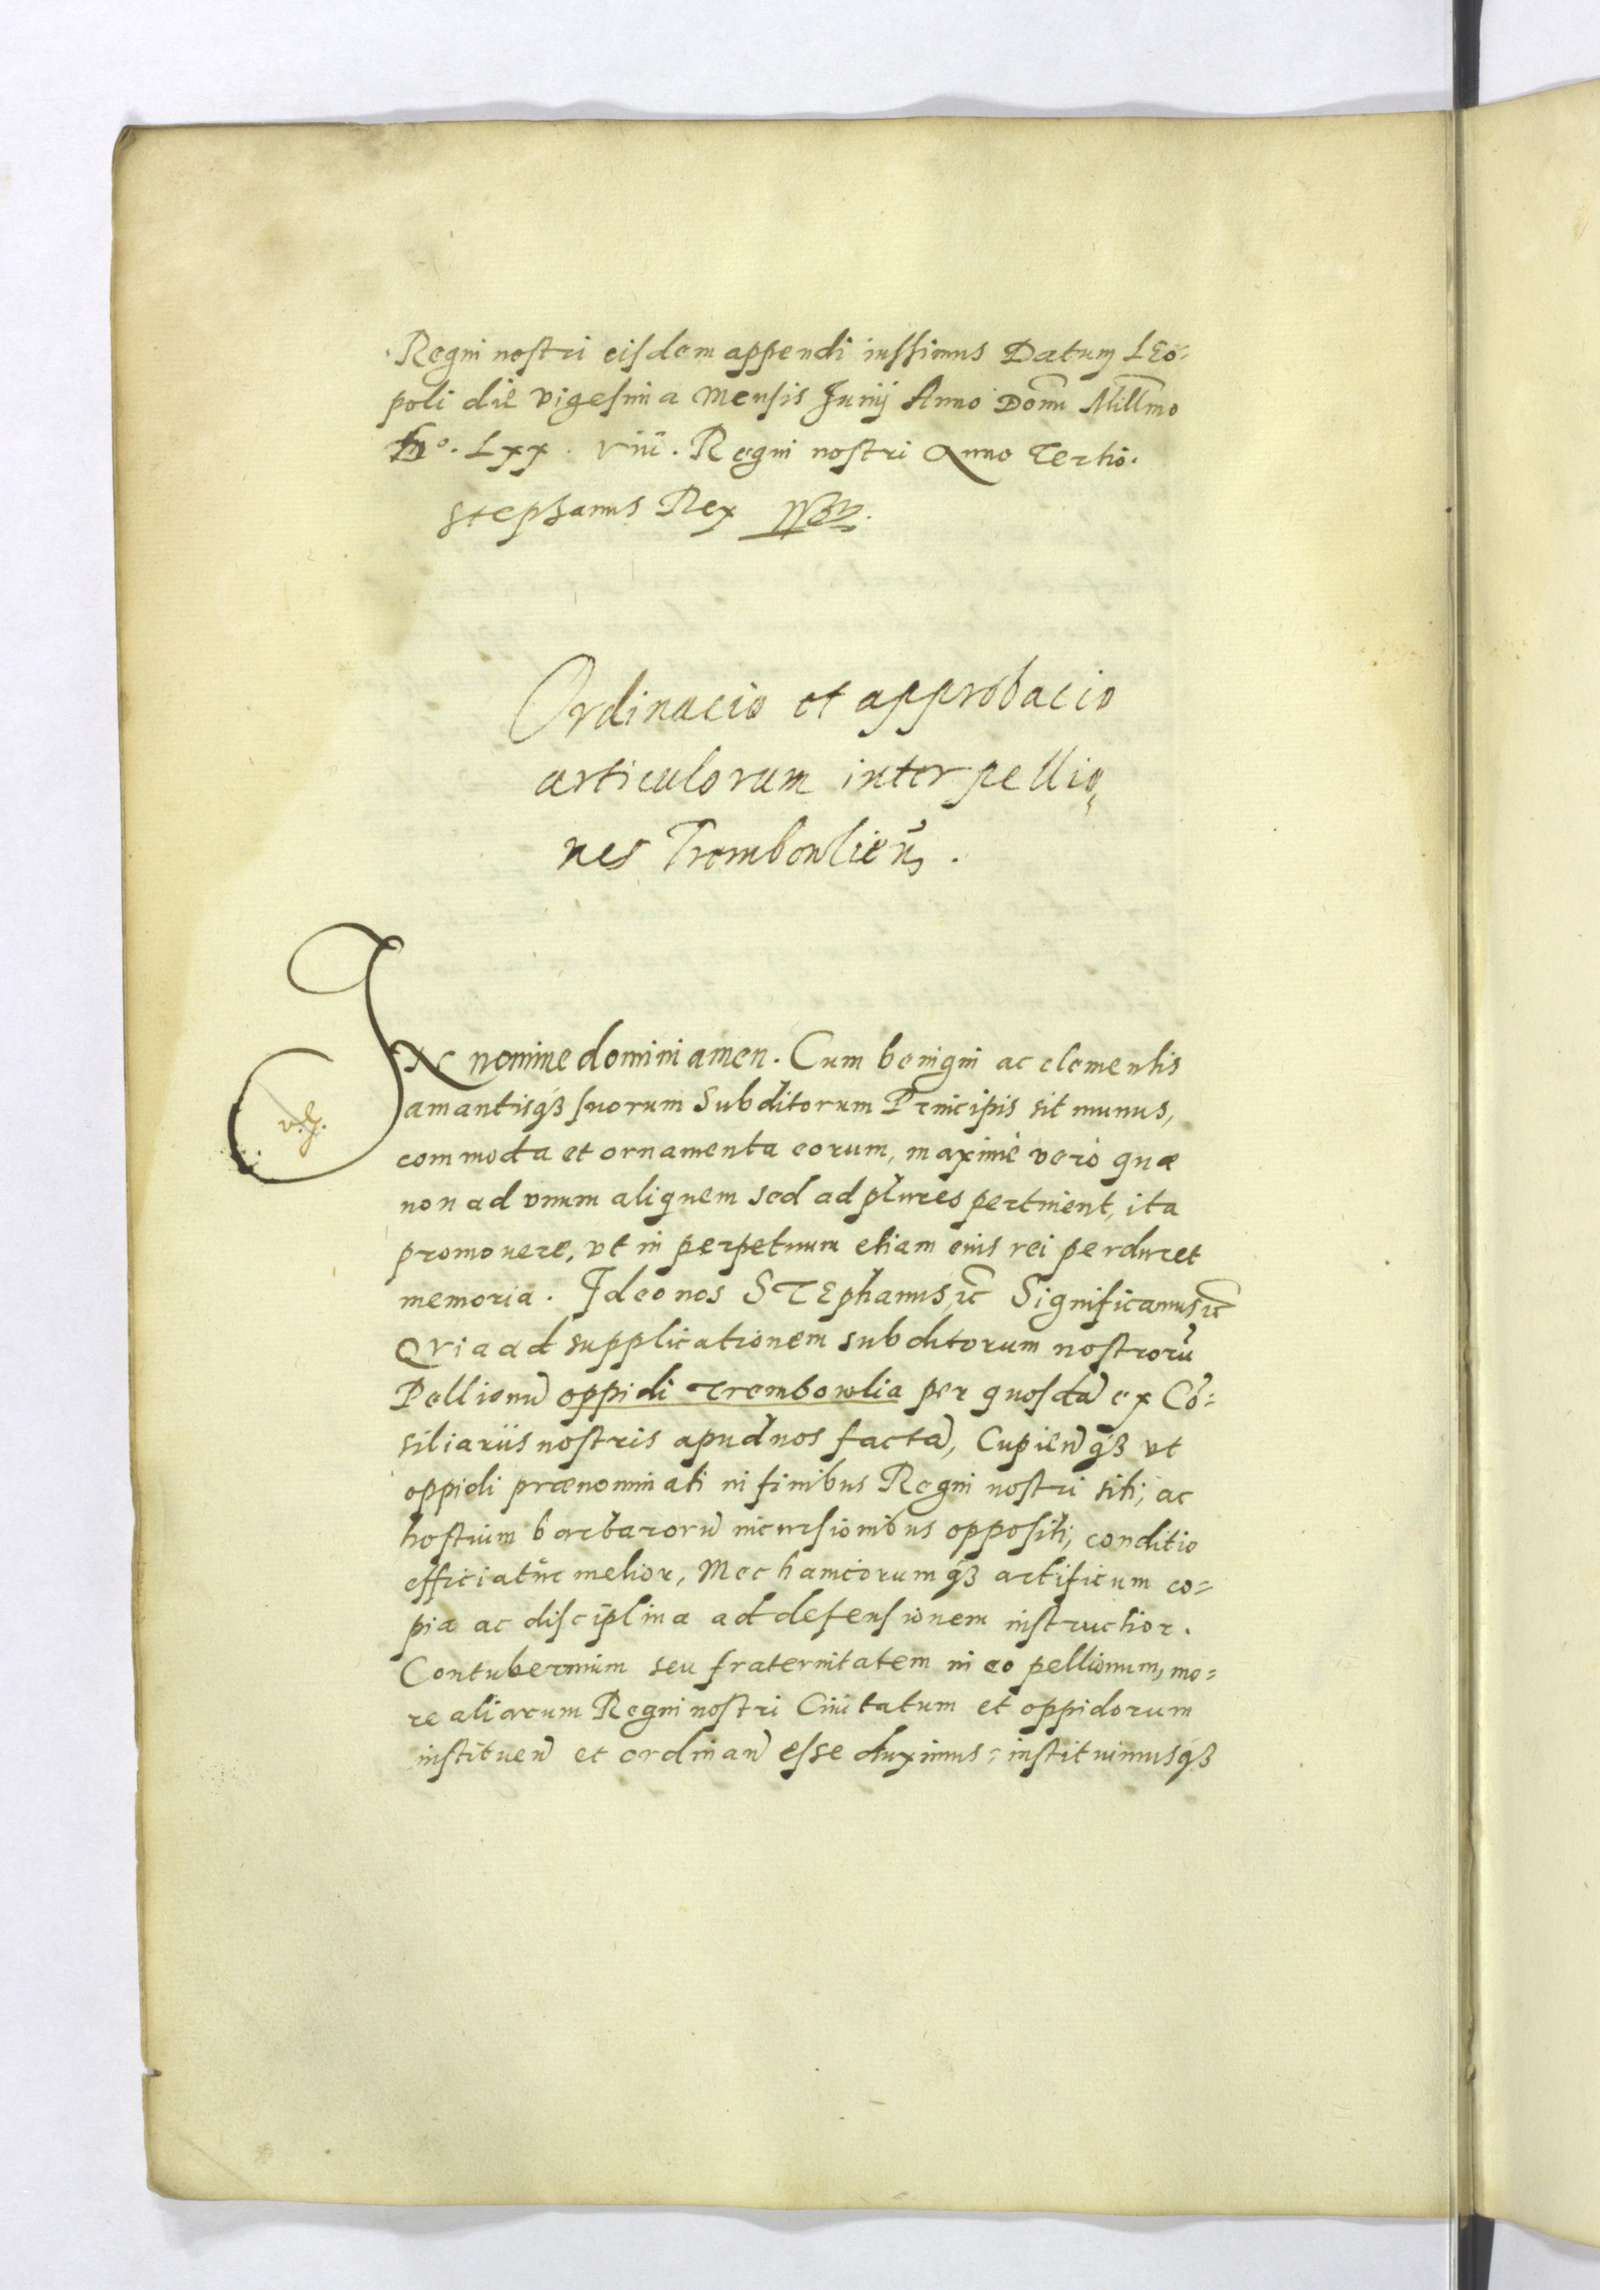 Regni nostri eisdem appendi iussimus Datum LEo=
poli die vigesima Mensis Junij Anno Domi Millmo
Lxx. viii. Regni nostri Anno Tertio.
Stephanus Rex
Ordinacio et approbacio
articulorum inter pellio
nes Trombowlien.
IN nomine domini amen. Cum benigni ac clementis
amantisq3 suorum Subditorum Principis sit munus,
commoda et ornamenta eorum, maxime vero quæ
non ad vnum aliquem sed ad plures pertinent, ita
promouere, vt in perpetuum etiam eius rei perduret
memoria. Ideo nos STEphanus, ec Significamus ec
QVia ad supplicationem subditorum nostrorū
Pellionū oppidi Trembowlia per quosdā ex Cō=
siliariis nostris apud nos factā, Cupienq3 vt
oppidi prænominati in finibus Regni nostri siti, ac
hostium barbarorū incursionibus oppositi, conditio
efficiatur melior, Mechanicorumq3 artificum co=
pia ac disciplina ad defensionem instructior.
Contubernium seu fraternitatem in eo pellionum, mo=
re aliarum Regni nostri Ciuitatum et oppidorum
instituen et ordinan esse duximus: instituimusq3
v.g.